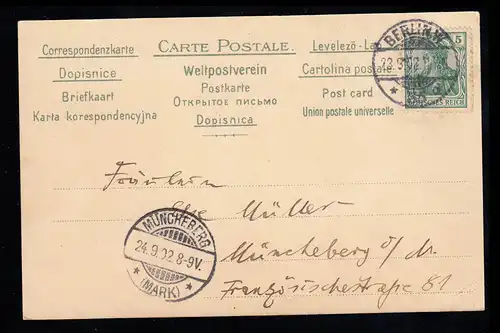 Correspondenzkarte
CARTE POSTALE.
Levelező-La
Dopisnice
Weltpostverein
Cartolina postale
Briefkaart
Postkarte
Post card
Karta korespondencyjna
ОТКРЫТОЕ ПИСЬМО
Union postale universelle
Dopisnica
BERLIN.W.
23.9.02
5
DEUTSCHES REICH
Fräulein
Müller
Müncheberg o/M.
Französischestraße 81
MÜNCHEBERG
24.9.02.8-9V.
* (MARK) *